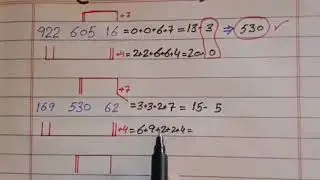 +7
922 605 16 =0+0+6+7=13-3 ⇒ 530 ✓
+4=2+2+6+6+4=20-0
+7
169 530 62 =3+3+2+7=15-5
+4=6+9+2+2+4=